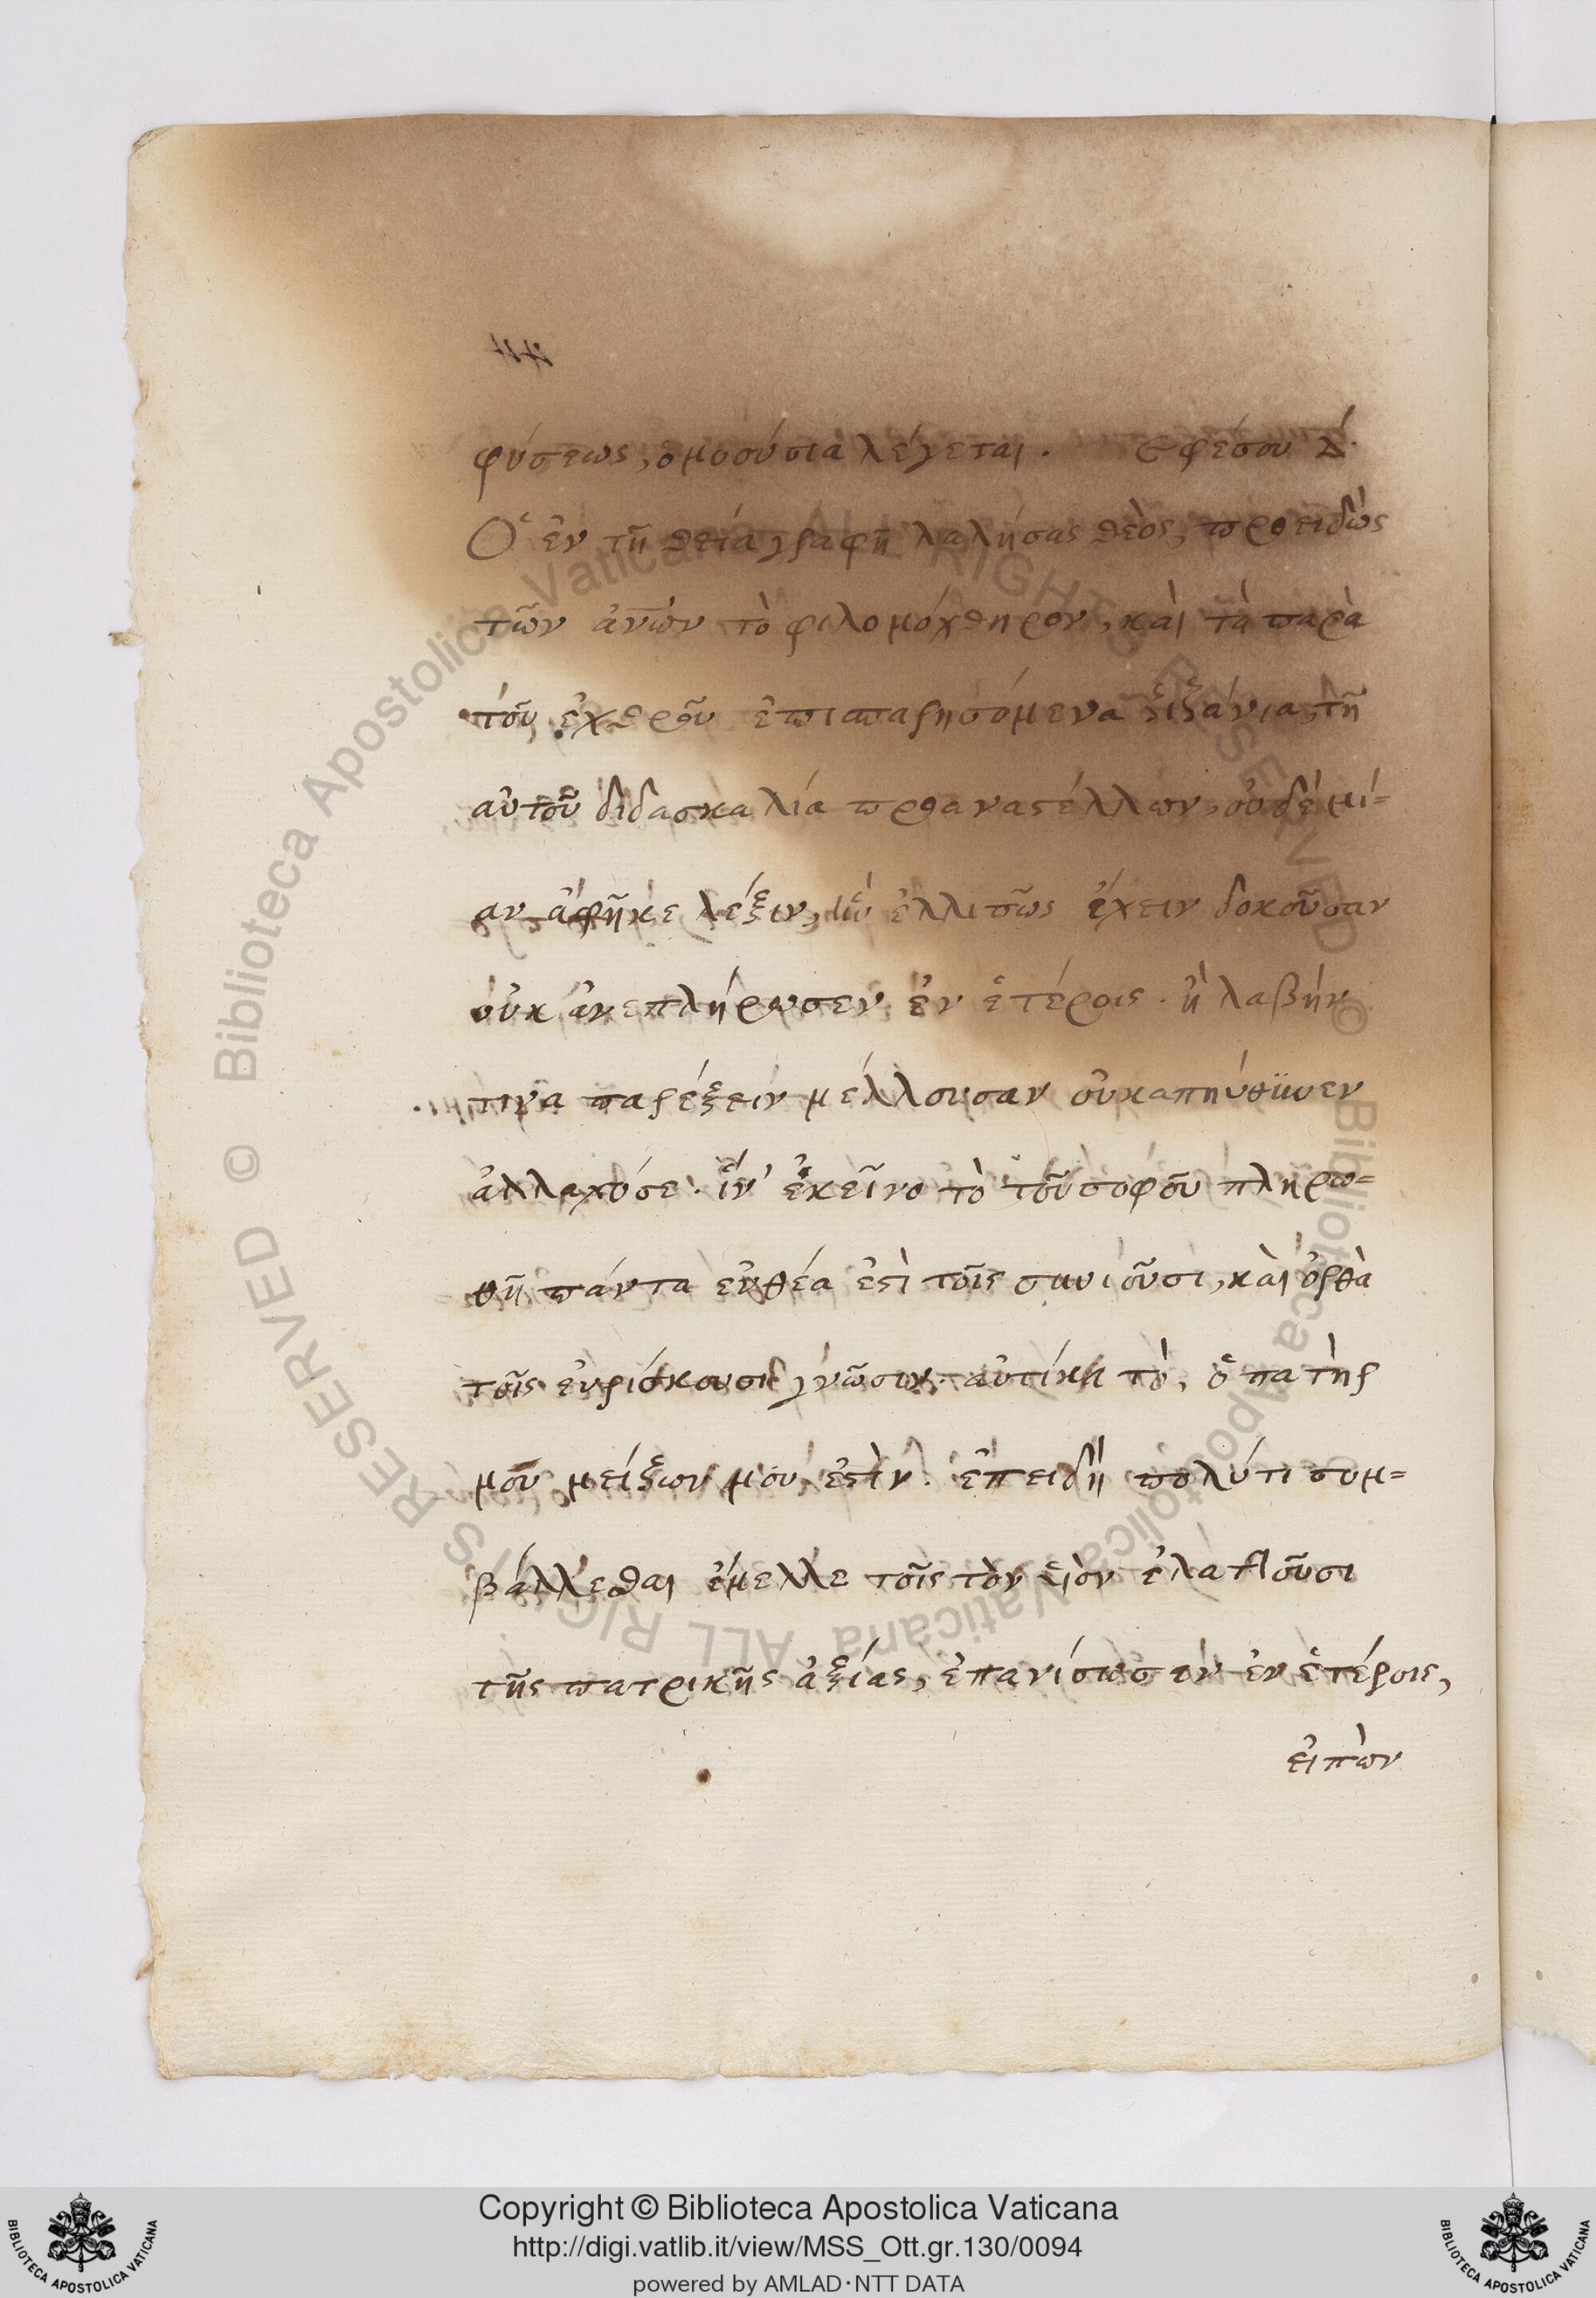 φύσεως, ὁμοούσια λέγεται. Εφέσου Δ΄.
Ὁ ἐν τῆ θεία γραφῆ λαλήσας θεὸς, προειδὼς
τῶν ἀνῶν τὸ φιλομόχθηρον, καὶ τὰ παρὰ
τοῦ ἐχθροῦ ἐπισπαρησόμενα ζιζάνια τῆ
αὐτοῦ διδασκαλία προαναστέλλων, οὐδὲ μί=
αν ἀφῆκε λέξιν, ἣν ἐλλιπῶς ἔχειν δοκοῦσαν
οὐκ ἀνεπλήρωσεν ἐν ἑτέροις. ἢ λαβήν
τινα παρέξειν μέλλουσαν οὐκ ἀπηύθυνεν
ἀλλαχόσε. ἵν' ἐκεῖνο τὸ τοῦ σοφοῦ πληρω=
θῆ πάντα εὐθέα ἐστὶ τοῖς συνιοῦσι, καὶ ὀρθὰ
τοῖς εὑρίσκουσι γνῶσιν. αὐτίκα τὸ, ὁ πατὴρ
μου μείζων μου ἐστὶν. ἐπειδὴ πολύ τι συμ=
βάλλεσθαι ἔμελλε τοῖς τὸν υἱὸν ἐλαττοῦσι
τῆς πατρικῆς ἀξίας, ἐπανίσωσεν ἐν ἑτέροις,
εἰπὼν
Copyright © Biblioteca Apostolica Vaticana
http://digi.vatlib.it/view/MSS_Ott.gr.130/0094
powered by AMLAD·NTT DATA
BIBLIOTECA APOSTOLICA VATICANA
BIBLIOTECA APOSTOLICA VATICANA
© Biblioteca Apostolica Vaticana ALL RIGHTS RESERVED
© Biblioteca Apostolica Vaticana ALL RIGHTS RESERVED